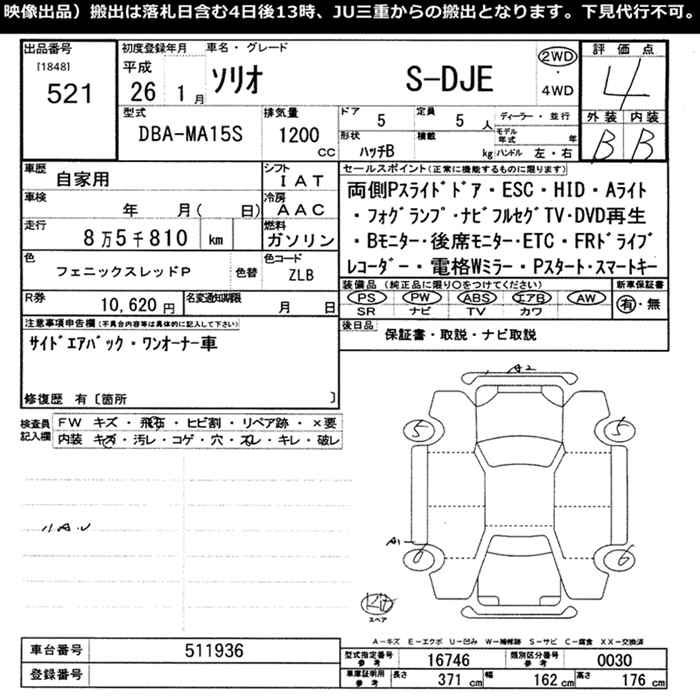 映像出品）搬出は落札日含む4日後13時、JU三重からの搬出となります。下見代行不可。
出品番号 初度登録年月 車名・グレード 評価点
[1848] 平成 2WD
521 26 1月 ソリオ S-DJE ・ 4
4WD
型式 排気量 ドア 定員 ディーラー・並行 外装 内装
DBA-MA15S 1200 cc 5 5 人 モデル年式 年 B B
形状 積載
ハッチB kg ハンドル 左・右
車歴 シフト セールスポイント(正常に機能するものに限ります)
自家用 IAT
車検 冷房 両側Pスライドドア・ESC・HID・Aライト
年 月( 日) AAC ・フォグランプ・ナビフルセグTV・DVD再生
走行 燃料 ・Bモニター・後席モニター・ETC・FRドライブ
8万5千810 km ガソリン レコーダー・電格Wミラー・Pスタート・スマートキー
色 色コード
フェニックスレッドP 色替 ZLB
装備品（純正品に限り○をつけてください） 新車保証書
R券 名変通知期限 PS PW ABS エアB AW 有・無
10,620円 月 日 SR ナビ TV カワ
注意事項申告欄(不具合内容等は具体的に記入して下さい) 後日品
サイドエアバック・ワンオーナー車 保証書・取説・ナビ取説
修復歴 有〔箇所 〕
検査員記入欄 FW キズ・飛石・ヒビ割・リペア跡・×要
内装 キズ・汚レ・コゲ・穴・スレ・キレ・破レ
A2
5 5
A1
6 6
スペア
A-キズ E-エクボ U-凹み W-補修跡 S-サビ C-腐食 XX-交換済
車台番号 511936
登録番号
型式指定番号参考 16746 類別区分番号参考 0030
車庫証明用参考 長さ 371 cm 幅 162 cm 高さ 176 cm